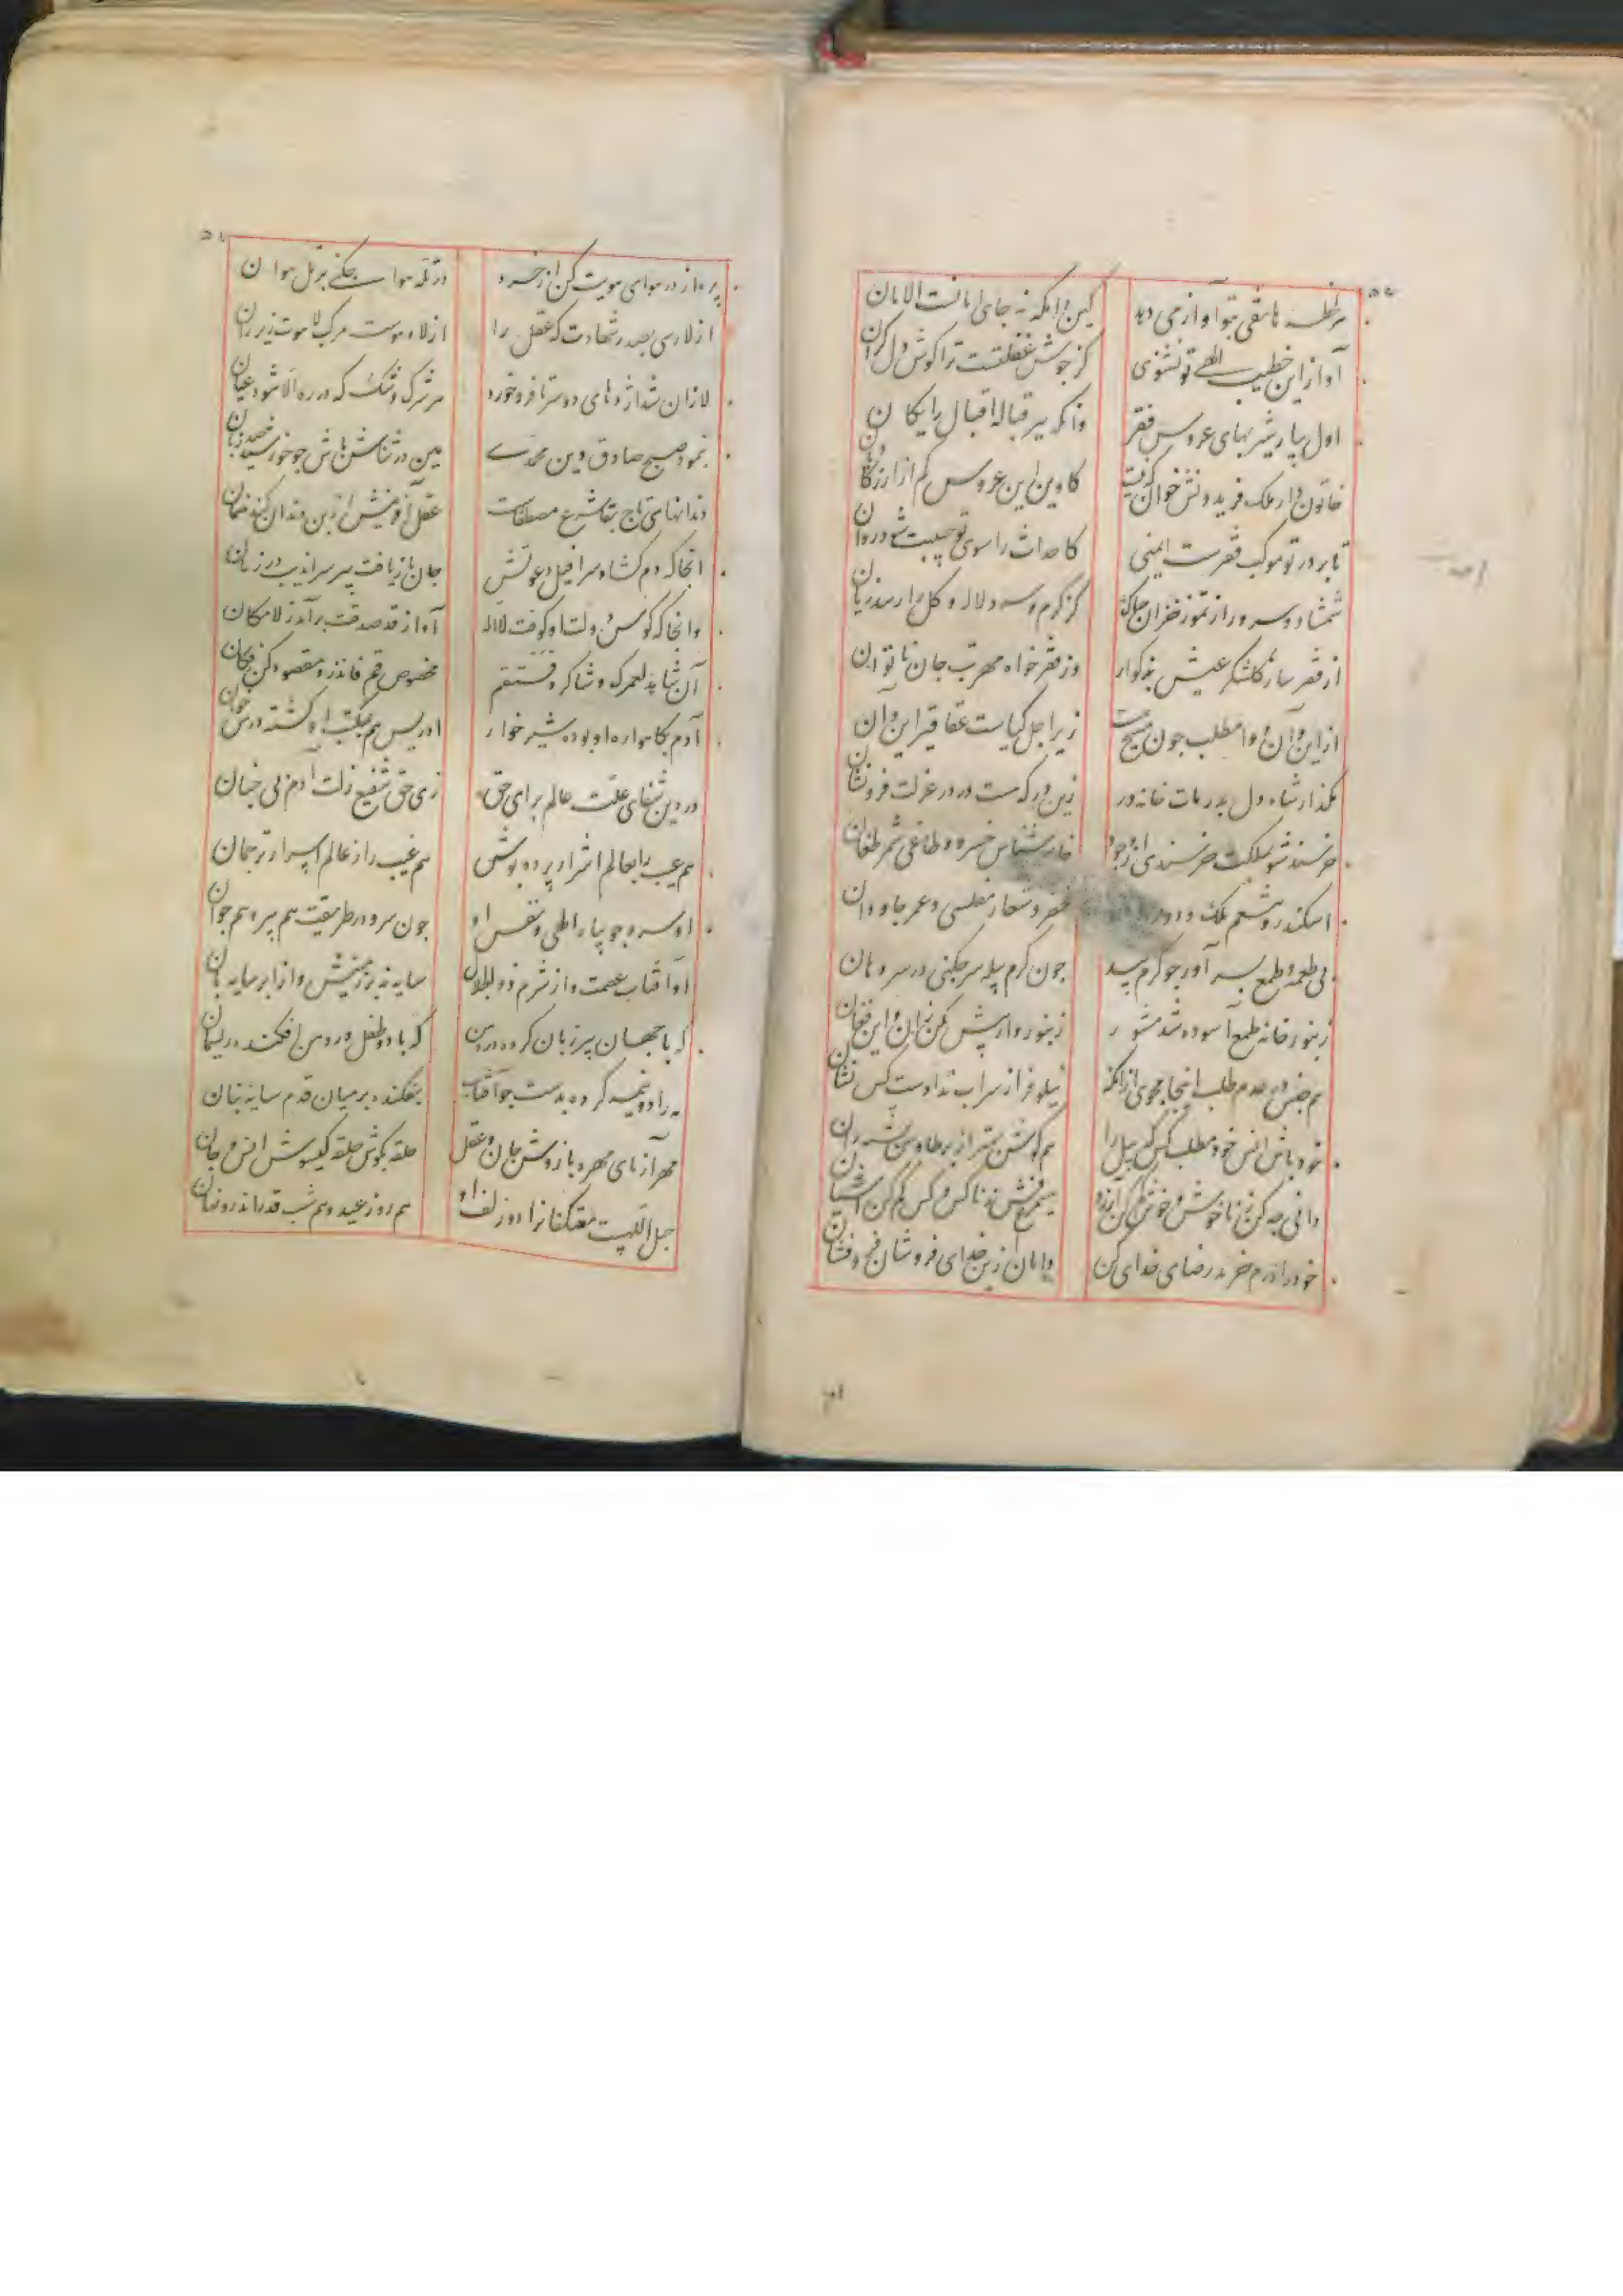 هر لحظه هاتفی بتو آواز می دهد
کین دامکه نه جای امانست الامان
آواز این خطیب الهی تو نشنوی
کز جوش غفلتست ترا کوش دل کران
اول بیار شیربهای عروس فقر
وانکه ببر قباله اقبال رایکان
کاوین این عروس کم از
تا بر در تو موکب فقرست ایمنی
کاحداث را سوی تو
شمشاد و سرو را ز تموز و خزان چه باک
کز کرم و سرد لاله و کل را رسد زیان
از فقر ساز کلشکر عیش بدکوار
وز فقر خواه مهر تب جان ناتوان
از این و آن دوا مطلب چون مسیح هست
زیرا اجل کیاست عقاقیر این و آن
مکذار شاه دل بدر مات خانه در
زین در که هست درد ز عزلت فرو نشان
خرسند شو بملکت خرسندی از وجود
خسرو و طاغی شمر طغان
اسکندر و تنعم ملک و دو روزه
خضر و شعار مفلسی و عمر جاودان
بی طعمه و طمع بسر آور چو کرم پید
چون کرم پیله سر چکنی در سر دهان
زنبور خانه طمع آسوده شد مشور
زنبوروار بیش مکن این و آن فغان
هم جنس در عدم طلب اینجا مجوی از آنکه
نیلوفر از سراب نداده است کس نشان
خود باش انس خود مطلب کس که پیل را
هم کوش بهتر از پر طاوس پشه ران
دانی چه کن ز ناخوش و خوش کم کن آرزو
خود را درم خرید رضای خدای کن
دامان ازین خدای فروشان فرو فشان
پرواز در هوای هویت کن از خرد
در تنکه هوا بچکنی بر پل هوان
از لا رسی بصدر شهادت که عقل را
از لا و هوست مرکب لاهوت زیر ران
لا زان شد اژدهای دو سر تا فرو خورد
هر شرک و شک که در ره الا شود عیان
بنمود صبح صادق دین محمدی
هین در ثناش باش چو خورشید صد زبان
دندانهای تاج بقا شرع مصطفاست
عقل آفرینش از بن دندان کند ضمان
آنجا که دم کشاد سرافیل دعوتش
جان باز یافت پیر سراندیب در زمان
وانجا که کوس دولت او کوفت لاله
آواز قد صدقت برآمد ز لامکان
آن شاهد لعمرک و شاکرد فاستقم
مخصوص قم فانذر و مقصود کن فکان
آدم بکاهواره او بوده شیرخوار
ادریس هم بمکتب او کشته درس خوان
در دین شفای علت عالم برای حق
زی حق شفیع زلت آدم پی جنان
هم عیب را بعالم اشرار پرده پوش
هم غیب را ز عالم اسرار ترجمان
او سروجویبار الهی و نفس او
چون سرو در طریقت هم پیر و هم جوان
او آفتاب عصمت و از شرم ذوالجلال
سایه نه بر زمینش و از ابر سایه بان
که با جهان پیر زبان کرده در دهن
که با دو طفل در دهن افکنده ریسمان
مه را دو نیمه کرده بدست چو آفتاب
بفکنده بر میان قدم سایه نهان
مهر آزمای مهره بازوش جان و عقل
حلقه بکوش حلقه کیسوش انس و جان
حبل اللهیست معتکفانرا دو زلف او
هم روز عید و هم شب قدر اندرو نهان